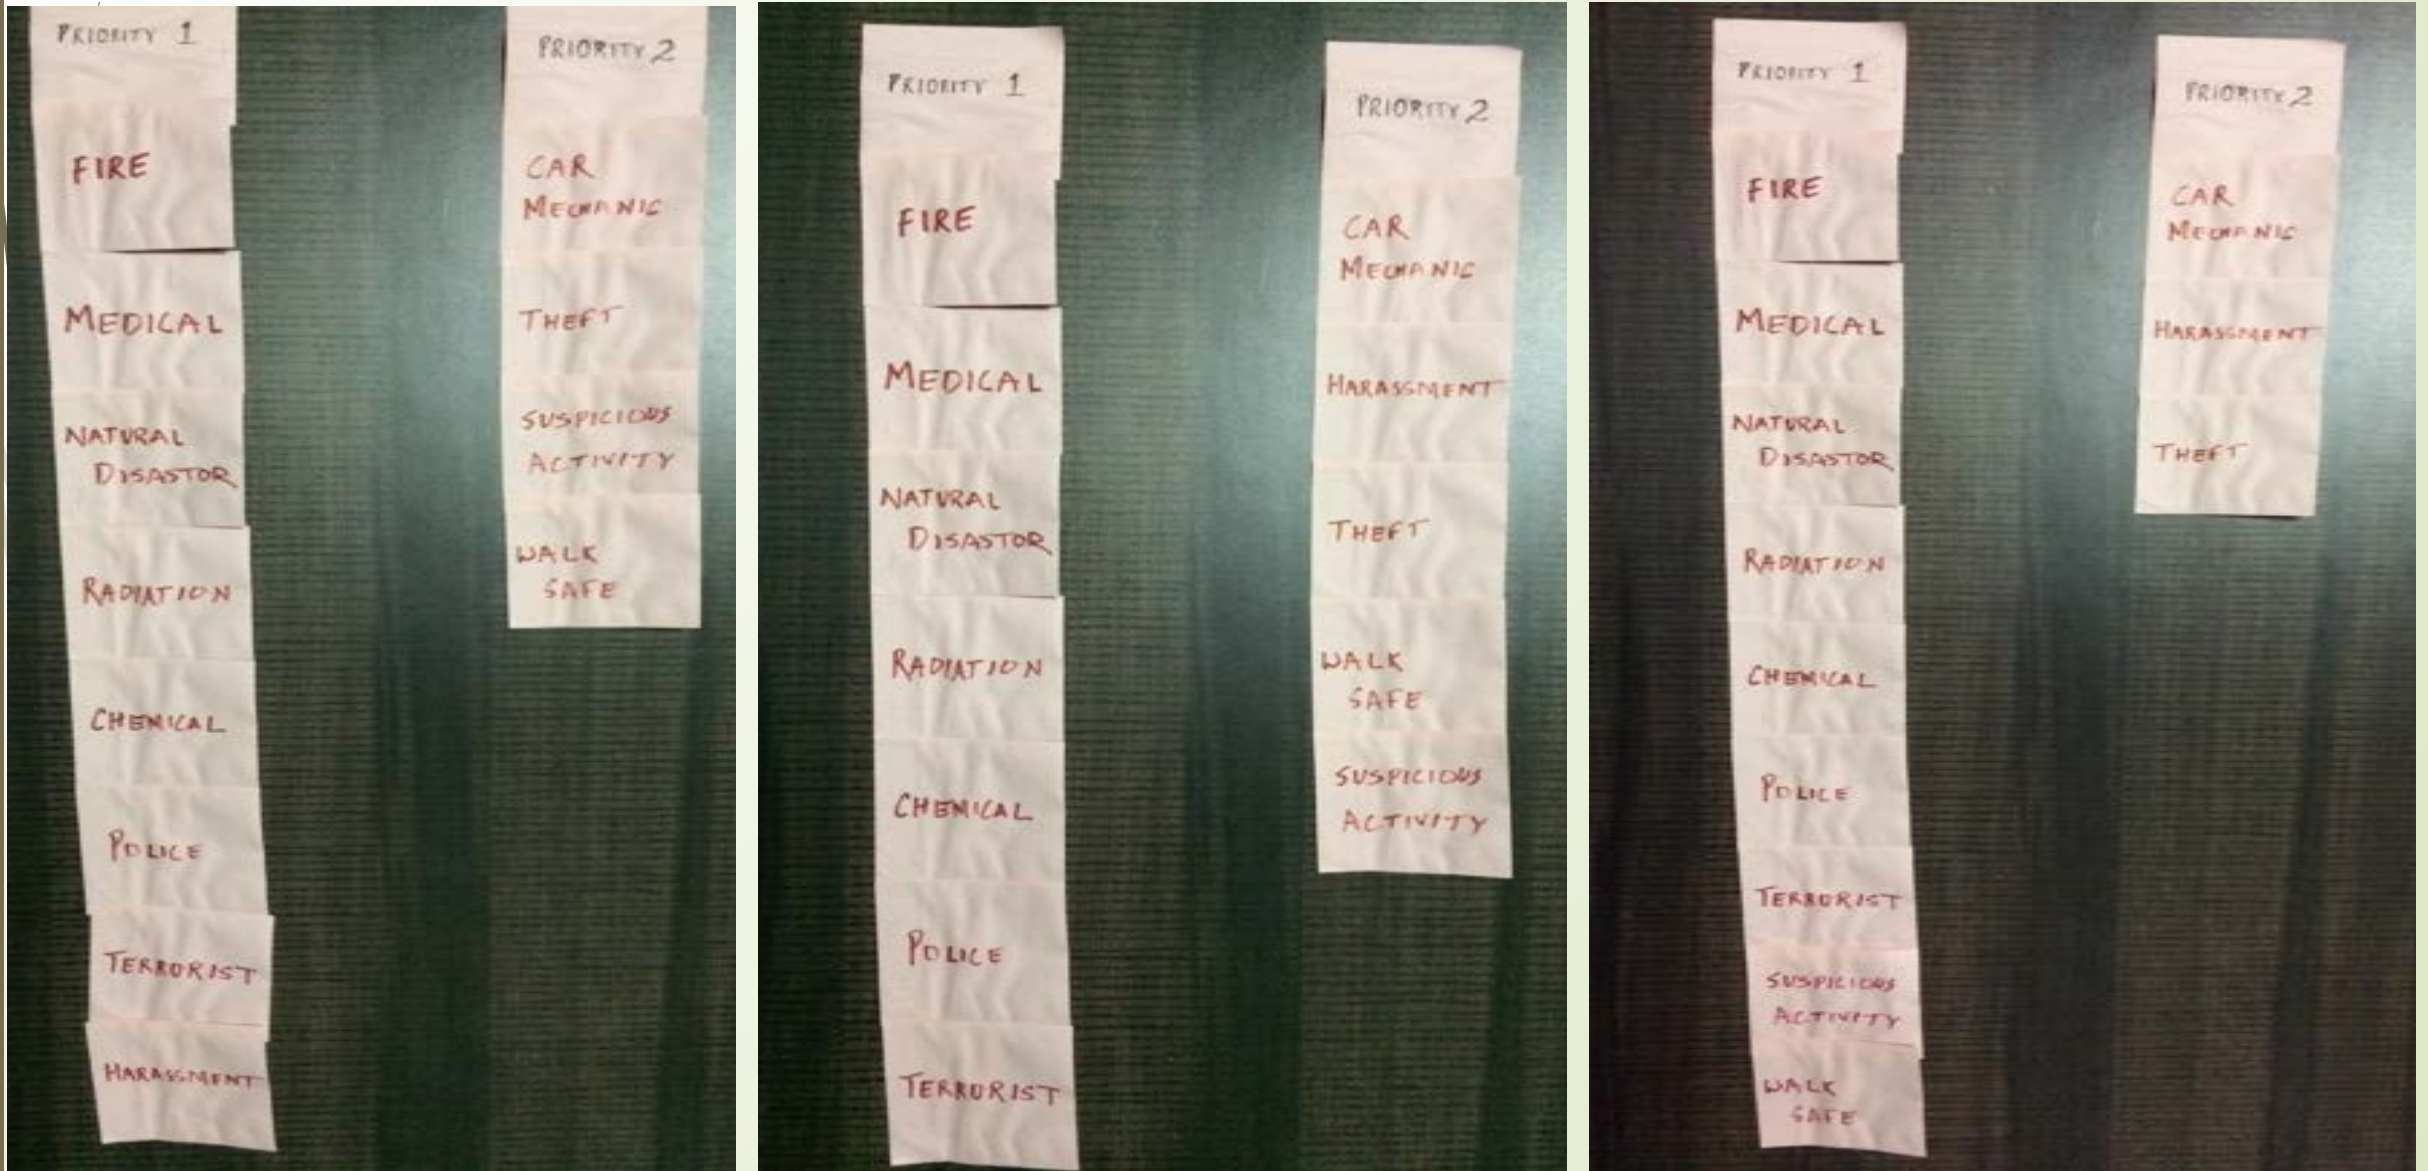 PRIORITY 1
FIRE
MEDICAL
NATURAL
DISASTOR
RADIATION
CHEMICAL
POLICE
TERRORIST
HARASSMENT
PRIORITY 2
CAR
MECHANIC
THEFT
SUSPICIOUS
ACTIVITY
WALK
SAFE
PRIORITY 1
FIRE
MEDICAL
NATURAL
DISASTOR
RADIATION
CHEMICAL
POLICE
TERRORIST
PRIORITY 2
CAR
MECHANIC
HARASSMENT
THEFT
WALK
SAFE
SUSPICIOUS
ACTIVITY
PRIORITY 1
FIRE
MEDICAL
NATURAL
DISASTOR
RADIATION
CHEMICAL
POLICE
TERRORIST
SUSPICIOUS
ACTIVITY
WALK
SAFE
PRIORITY 2
CAR
MECHANIC
HARASSMENT
THEFT